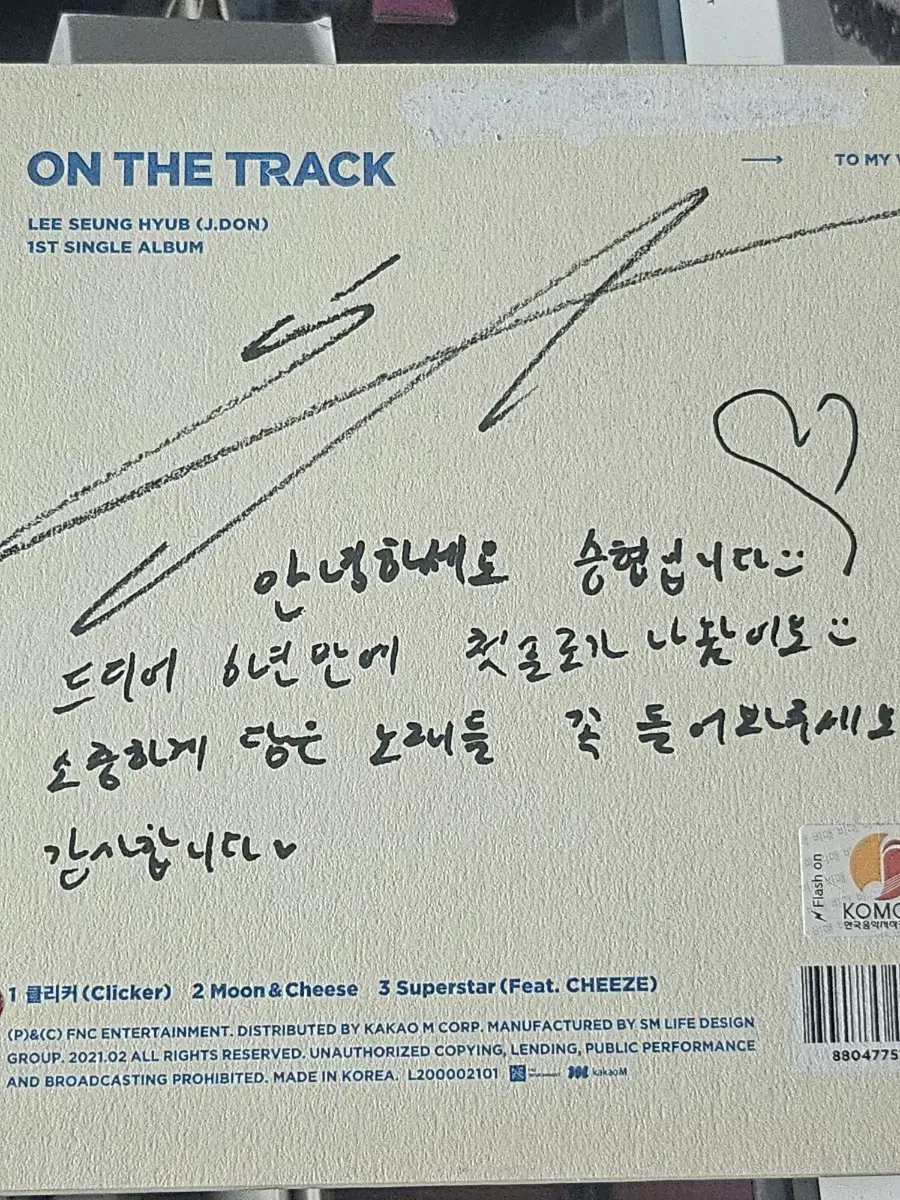 ON THE TRACK
→ TO MY
LEE SEUNG HYUB (J.DON)
1ST SINGLE ALBUM
안녕하세요 승협입니다
드디어 6년만에 첫솔로가 나왔어요
소중하게 담은 노래들 꼭 들어봐주세요
감사합니다♥
Flash on
KOMC
1 클리커 (Clicker) 2 Moon & Cheese 3 Superstar (Feat. CHEEZE)
(P)&(C) FNC ENTERTAINMENT. DISTRIBUTED BY KAKAO M CORP. MANUFACTURED BY SM LIFE DESIGN
GROUP. 2021.02 ALL RIGHTS RESERVED. UNAUTHORIZED COPYING, LENDING, PUBLIC PERFORMANCE
AND BROADCASTING PROHIBITED. MADE IN KOREA. L200002101 kakaoM
8804775